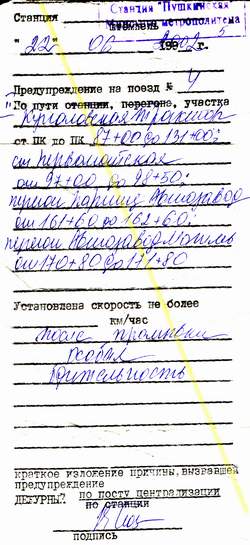 Станция "Пушкинская"
Станция
Минского метрополитена
"22" 06 2002 г.
Предупреждение на поезд № 4
По пути станции, перегона, участка
от ПК до ПК 87+00 до 131+00;
ст Первомайская
от 97+00 до 98+50;
от 161+60 до 162+60;
от 170+80 до 171+80
Установлена скорость не более
км/час
после промывки
особая
бдительность
краткое изложение причины, вызвавшей
предупреждение
ДЕЖУРНЫЙ по посту централизации
по станции
подпись